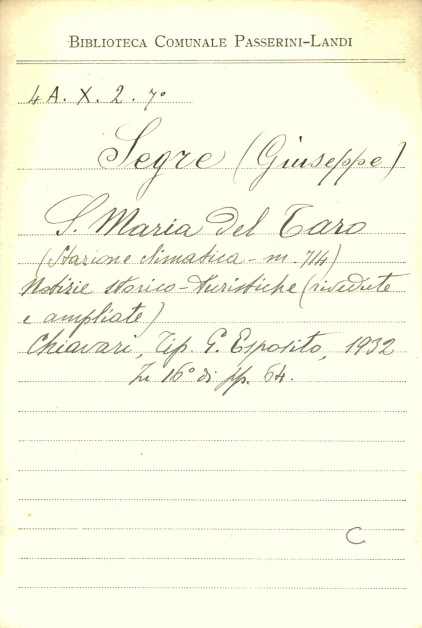 BIBLIOTECA COMUNALE PASSERINI-LANDI
4 A. X. 2. 7º
Segre (Giuseppe)
S. Maria del Taro
(Stazione climatica - m. 714)
Notizie storico-turistiche (rivedute
e ampliate)
Chiavari, Tip. G. Esposito, 1932
In 16º di pp. 64.
C